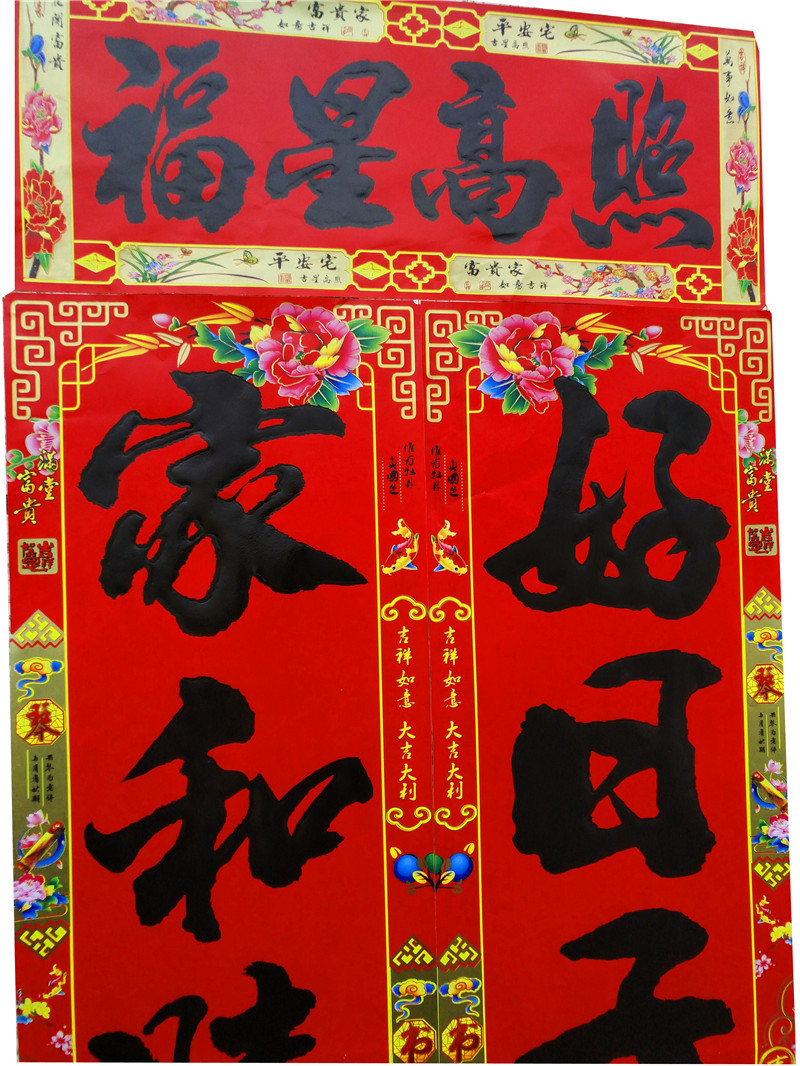 富貴家
如意吉祥
平安宅
吉星高照
花開富貴
萬事如意
福星高照
平安宅
吉星高照
富貴家
如意吉祥
家和
好日子
滿堂
富貴
滿堂
富貴
吉祥如意 大吉大利
吉祥如意 大吉大利
琴
琴
书
书